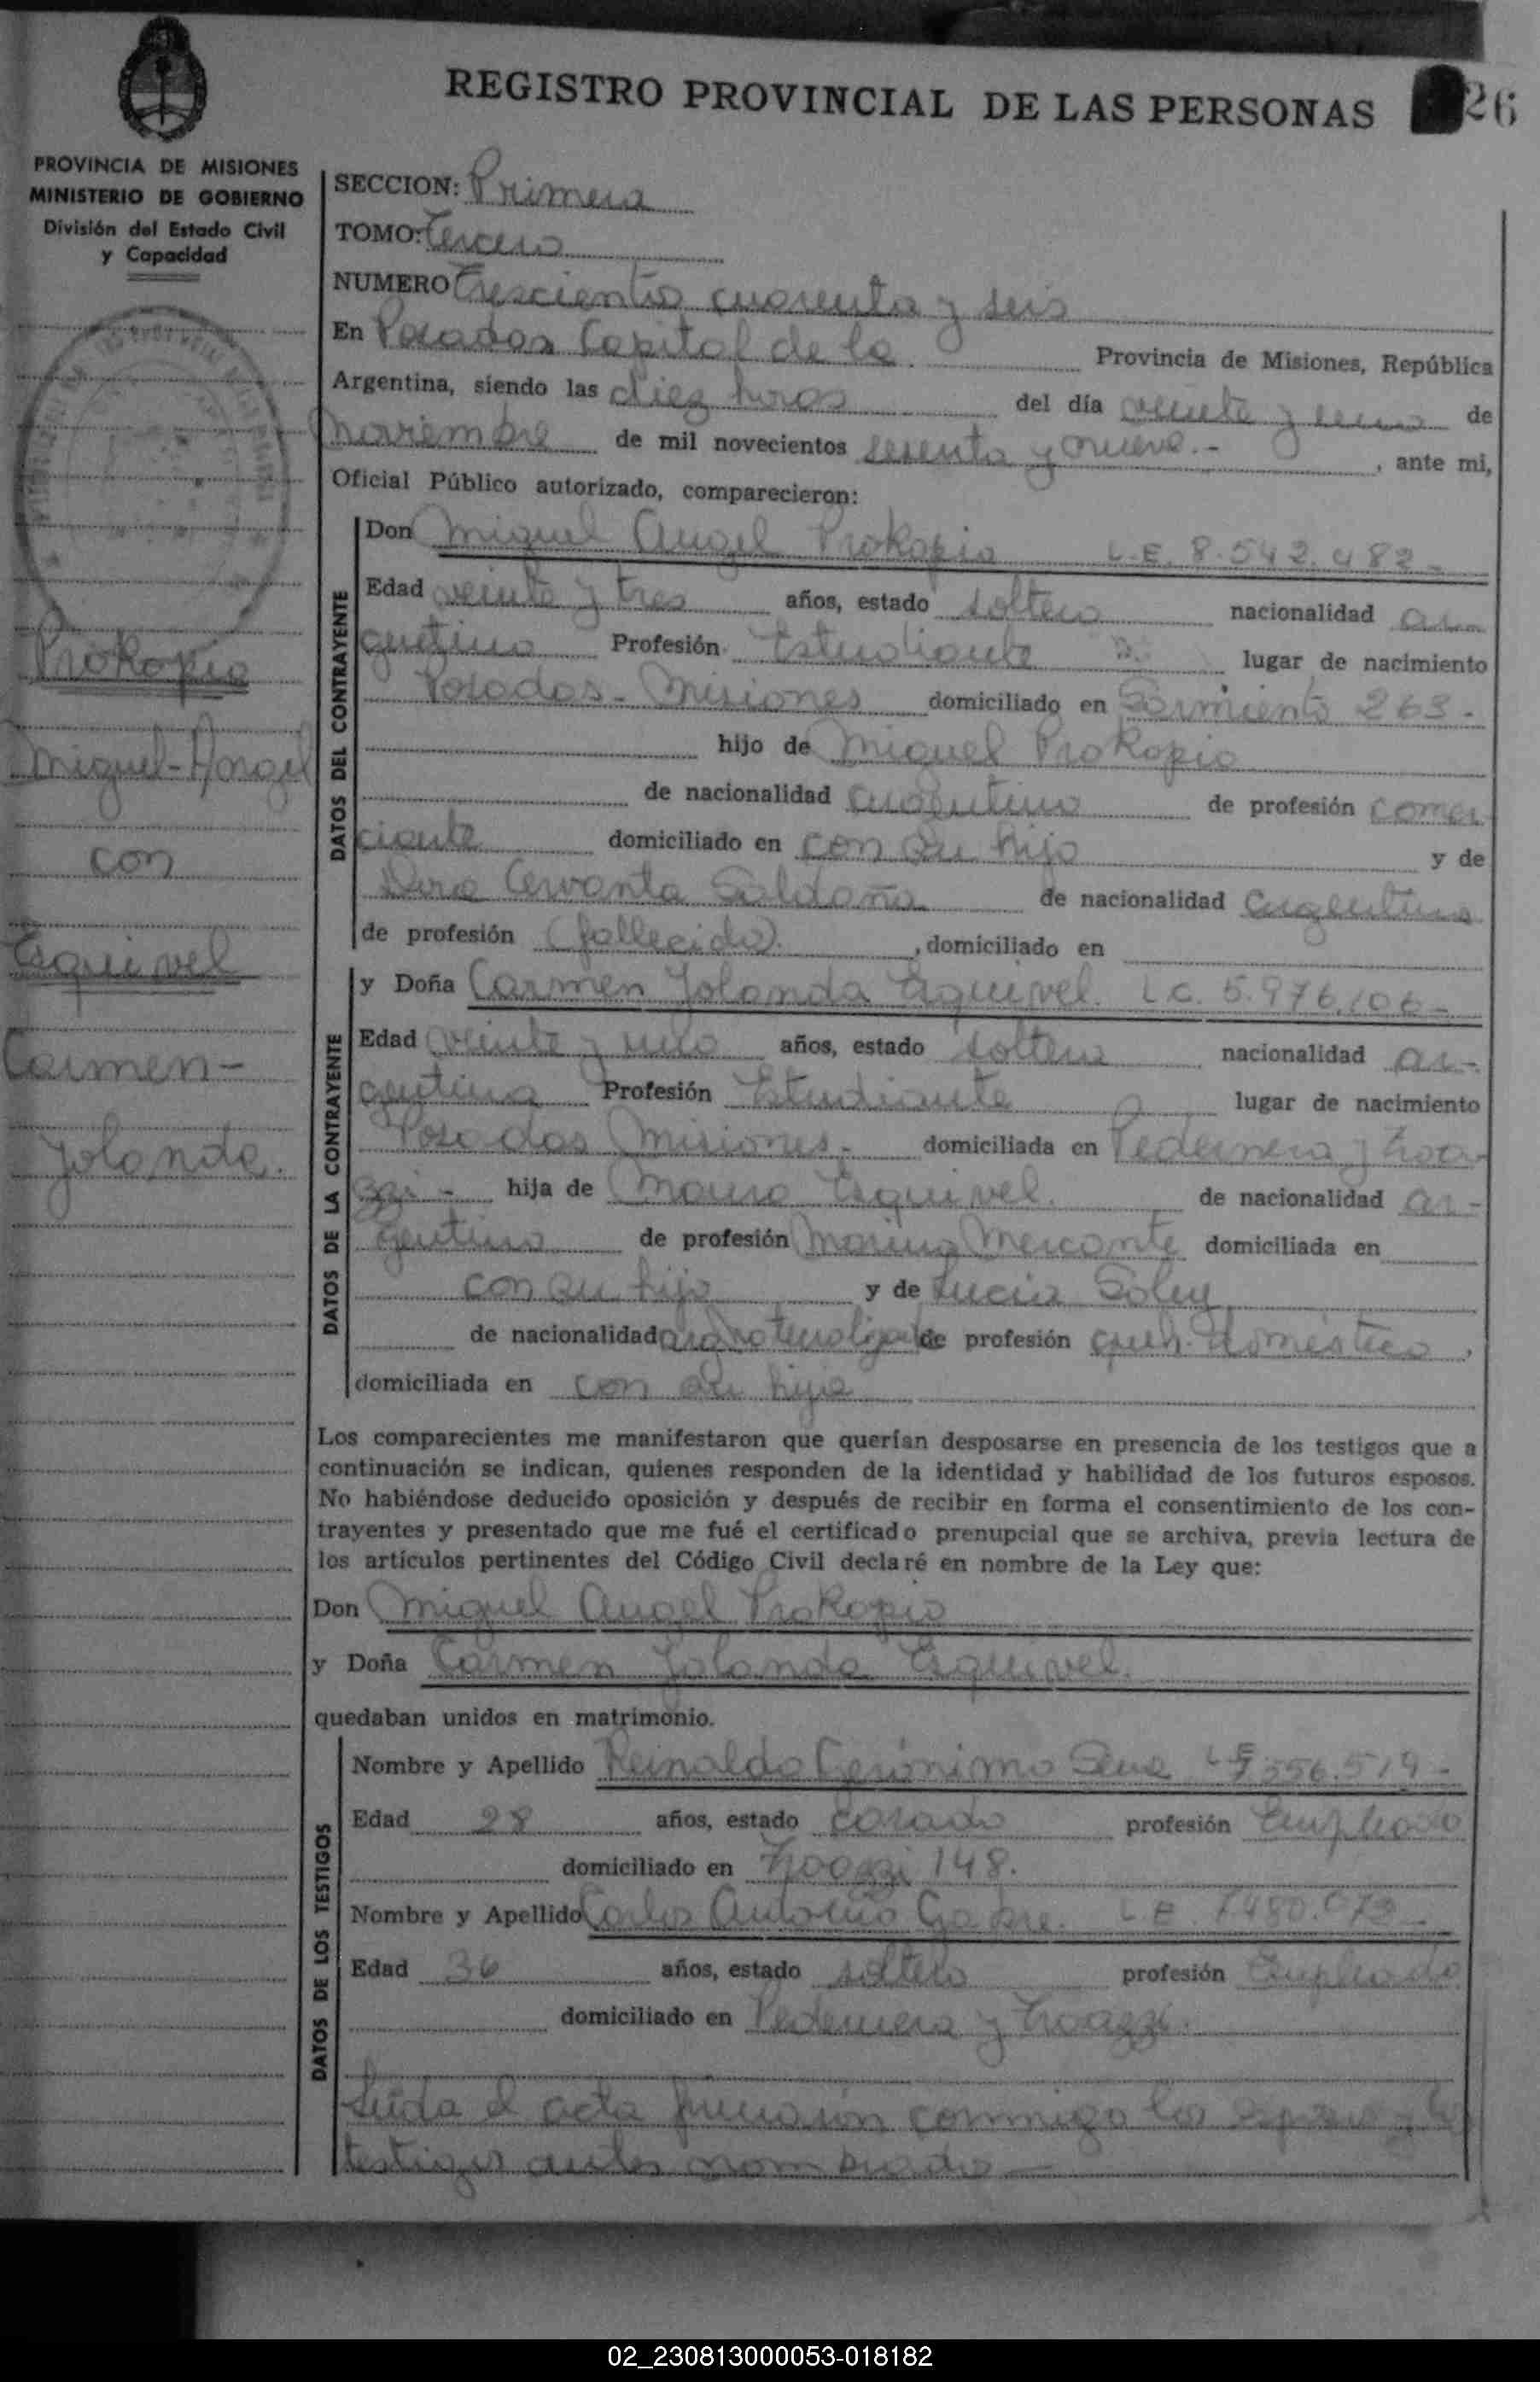 REGISTRO PROVINCIAL DE LAS PERSONAS 26
PROVINCIA DE MISIONES
MINISTERIO DE GOBIERNO
División del Estado Civil
y Capacidad
Prokopio
Miguel-Angel
con
Esquivel
Carmen-
Yolanda.
SECCION: Primera
TOMO: Tercero
NUMERO Trescientos cuarenta y seis
En Posadas Capital de la Provincia de Misiones, República
Argentina, siendo las diez horas del día veinte y uno de
Noviembre de mil novecientos sesenta y nueve.- , ante mi,
Oficial Público autorizado, comparecieron:
DATOS DEL CONTRAYENTE
Don Miguel Angel Prokopio L.E. 8.542.482-
Edad veinte y tres años, estado soltero nacionalidad ar-
gentino Profesión Estudiante lugar de nacimiento
Posadas-Misiones domiciliado en Sarmiento 263-
hijo de Miguel Prokopio
de nacionalidad argentino de profesión comer
ciante domiciliado en con su hijo y de
Cervanta Saldaña de nacionalidad argentina
de profesión (fallecida). , domiciliado en
DATOS DE LA CONTRAYENTE
y Doña Carmen Yolanda Esquivel. L.C. 5.976.106-
Edad veinte y uno años, estado soltera nacionalidad ar-
gentina Profesión Estudiante lugar de nacimiento
Posadas Misiones- domiciliada en Pedernera y
hija de Mauro Esquivel. de nacionalidad ar-
gentino de profesión Marino Mercante domiciliada en
con su hija y de Lucia
de nacionalidad de profesión queh. doméstico ,
domiciliada en con su hija
Los comparecientes me manifestaron que querían desposarse en presencia de los testigos que a
continuación se indican, quienes responden de la identidad y habilidad de los futuros esposos.
No habiéndose deducido oposición y después de recibir en forma el consentimiento de los con-
trayentes y presentado que me fué el certificado prenupcial que se archiva, previa lectura de
los artículos pertinentes del Código Civil declaré en nombre de la Ley que:
Don Miguel Angel Prokopio
y Doña Carmen Yolanda Esquivel.
quedaban unidos en matrimonio.
DATOS DE LOS TESTIGOS
Nombre y Apellido Reinaldo Gerónimo L.E. 7.556.519-
Edad 28 años, estado casado profesión Empleado
domiciliado en 148.
Nombre y Apellido Carlos Antonio L.E. 7480.073-
Edad 36 años, estado soltero profesión Empleado
domiciliado en Pedernera y
Leída el acta firmaron conmigo los esposos y los
testigos antes nombrados —
02_230813000053-018182